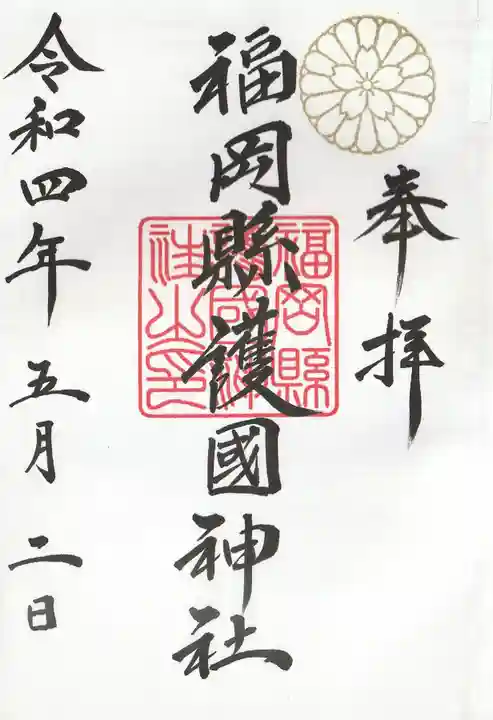 奉拝
福岡縣護國神社
福岡縣
護國神
社之印
令和四年五月二日